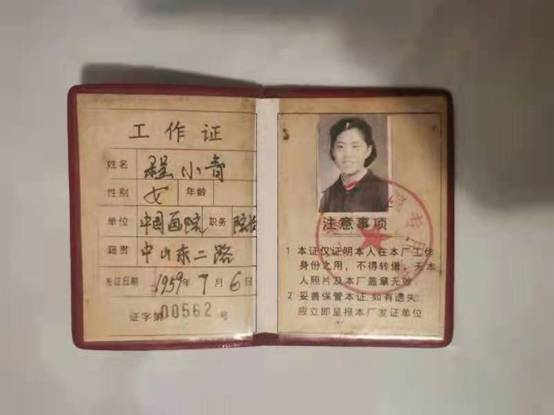 工作证
姓名 程小青
性别 女 年龄
单位 中国画院 职务 院长
籍贯 中山东二路
发证日期 1959年7月6日
证字第00562号
注意事项
1 本证仅证明本人在本厂工作
身份之用，不得转借，无本
人照片及本厂盖章无效
2 妥善保管本证，如有遗失
应立即呈报本厂发证单位